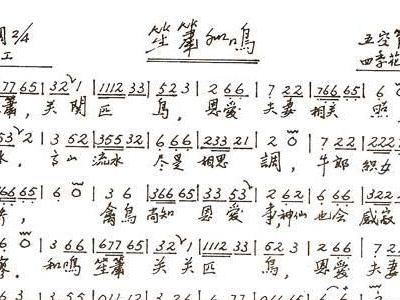 2/4 笙簫和鳴 五空管
工 四季花
677 65 | 32 1 | 1112 33 | 52 3 | 2 66 | 7 22 | 766 65 | 6 0
簫，关関匹 鳥，恩愛 夫妻 相关 照
53 2 | 3 52 | 355 32 | 6 66 | 233 21 | 2 0 | 7 22 | 222
水，高山 流水 尽是 相思 調，牛郎 織女
66 65 | 6 0 | 3 6 | 366 65 | 33 53 | 2 62 | 6 66 | 322
禽鳥 尚知 恩愛 重，神仙 也会 感寂
6 0 | 3 66 | 677 65 | 32 1 | 1112 33 | 52 3 | 2 66 | 7 2
寥。和鳴 笙簫 关关匹 鳥，恩愛 夫妻